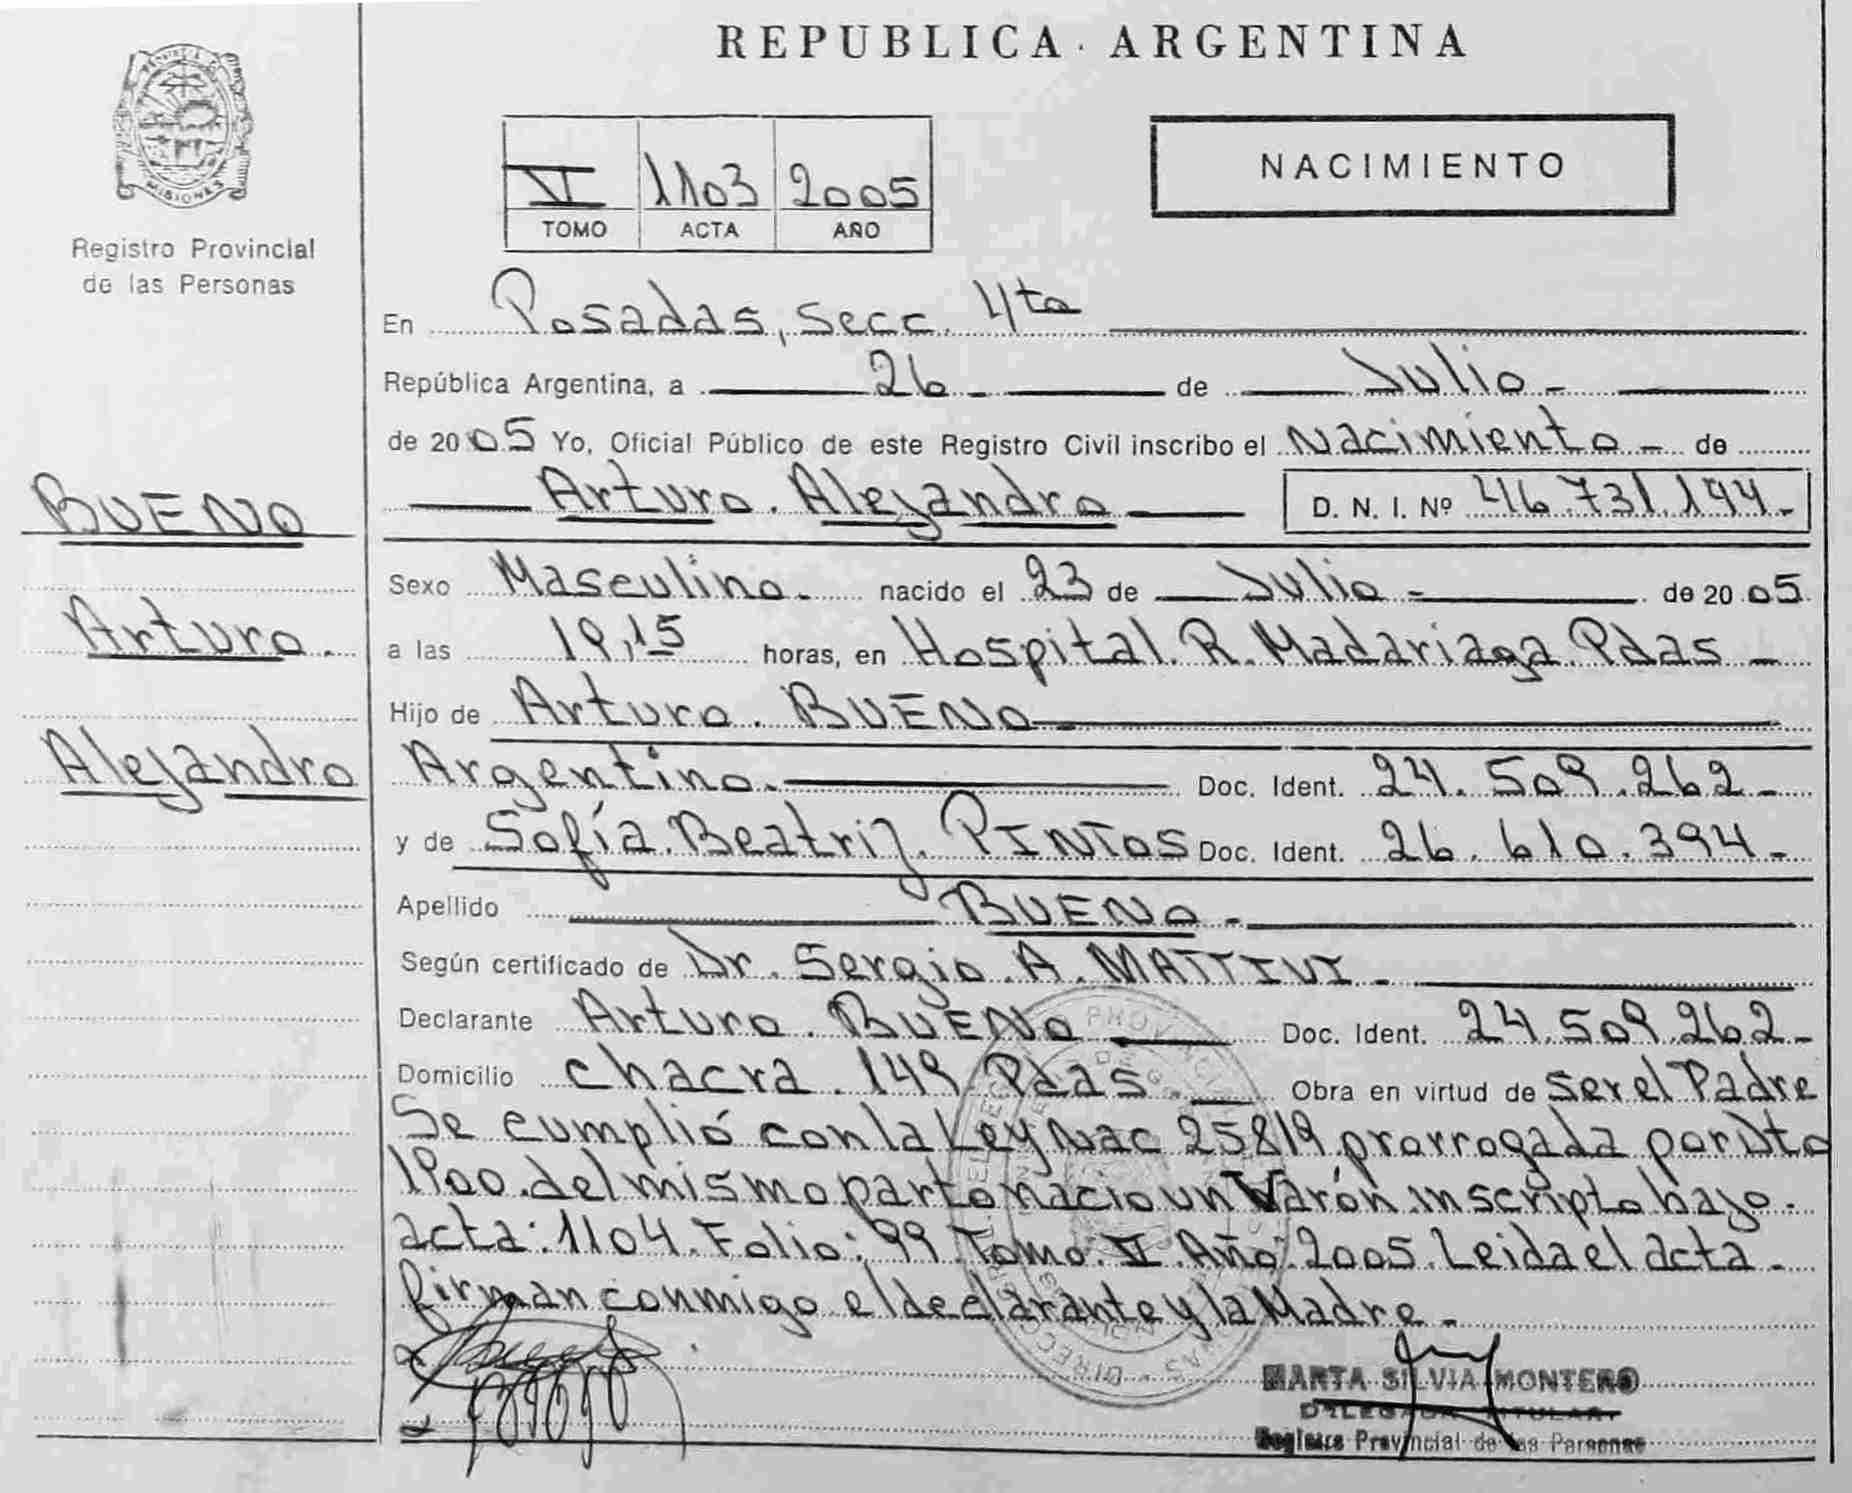 REPUBLICA ARGENTINA
PROVINCIA DE
MISIONES
Registro Provincial
de las Personas
VI 1103 2005
TOMO ACTA AÑO
NACIMIENTO
En Posadas, Secc. 4ta
República Argentina, a 26 de Julio
de 2005 Yo, Oficial Público de este Registro Civil inscribo el Nacimiento de
Arturo Alejandro D. N. I. Nº 46.731.194
BUENO
Sexo Masculino nacido el 23 de Julio de 2005
Arturo
a las 19,15 horas, en Hospital R. Madariaga Pdas
Hijo de Arturo BUENO
Alejandro
Argentino Doc. Ident. 24.509.262
y de Sofía Beatriz PINTOS Doc. Ident. 26.610.394
Apellido BUENO
Según certificado de Dr. Sergio A. MATTIVI
Declarante Arturo BUENO Doc. Ident. 24.509.262
Domicilio chacra 149 Pdas Obra en virtud de Ser el Padre
Se cumplió con la Ley Nac 25819 prorrogada por Dto
1900. del mismo parto nacio un Varón inscripto bajo
acta: 1104. Folio: 99. Tomo VI. Año: 2005. Leida el acta
firman conmigo el declarante y la Madre
MARTA SILVIA MONTERO
DELEGADA TITULAR
Registro Provincial de las Personas